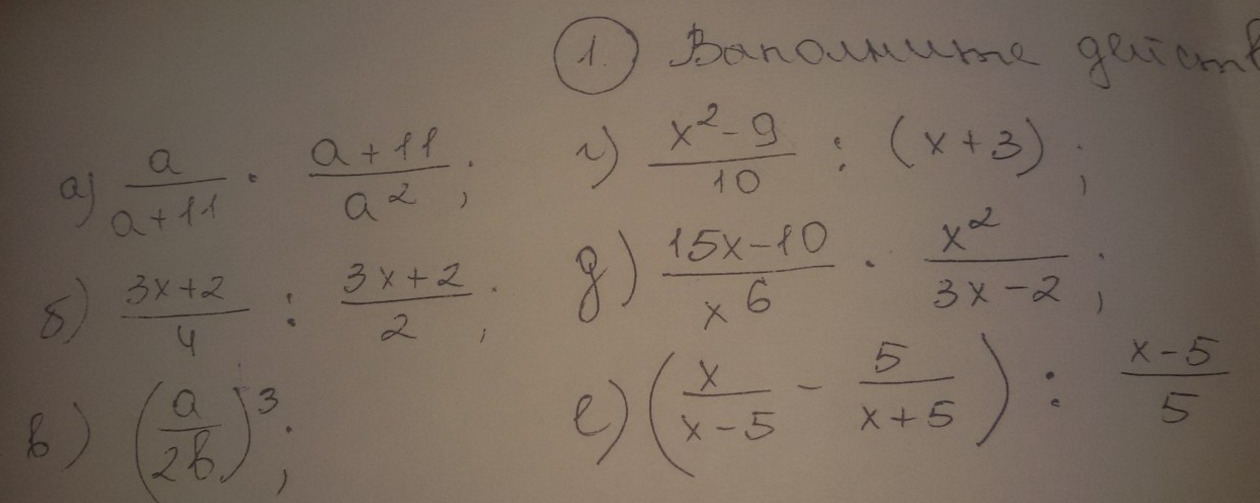 1. Выполните действ
а) \frac{a}{a+11} \cdot \frac{a+11}{a^2};
б) \frac{3x+2}{4} : \frac{3x+2}{2};
в) \left(\frac{a}{2b}\right)^3;
г) \frac{x^2-9}{10} : (x+3);
д) \frac{15x-10}{x^6} \cdot \frac{x^2}{3x-2};
е) \left(\frac{x}{x-5} - \frac{5}{x+5}\right) : \frac{x-5}{5}